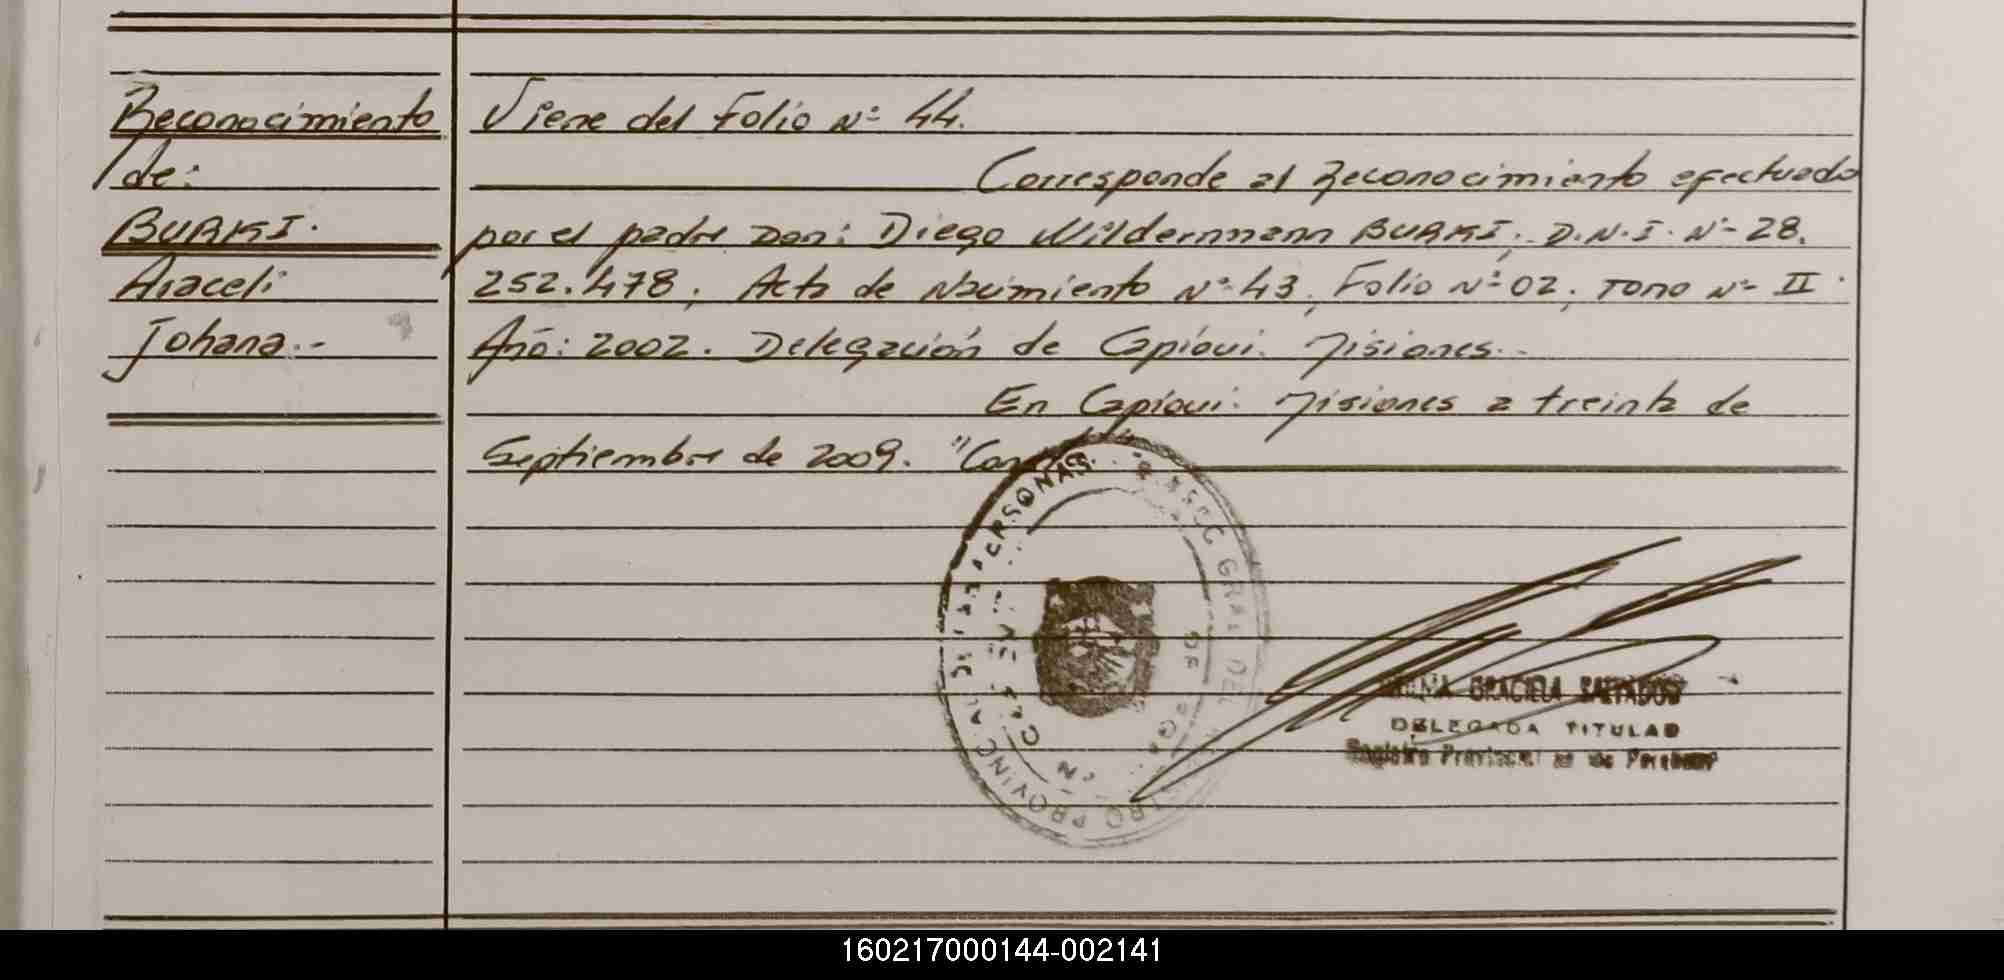 Reconocimiento
de:
BURKI.
Araceli
Johana.-
Viene del Folio Nº 44.
Corresponde al Reconocimiento efectuado
por el padre Don: Diego Wildernmann BURKI; D.N.I. Nº 28.
252.478; Acta de Nacimiento Nº 43; Folio Nº 02; Tomo Nº II.
Año: 2002. Delegación de Capíovi. Misiones.-
En Capíovi. Misiones a treinta de
Septiembre de 2009.
PERSONAS
GRAL DEL
PROVINCIAL DE LAS
GRACIELA SALVADOR
DELEGADA TITULAR
Registro Provincial de las Personas
160217000144-002141